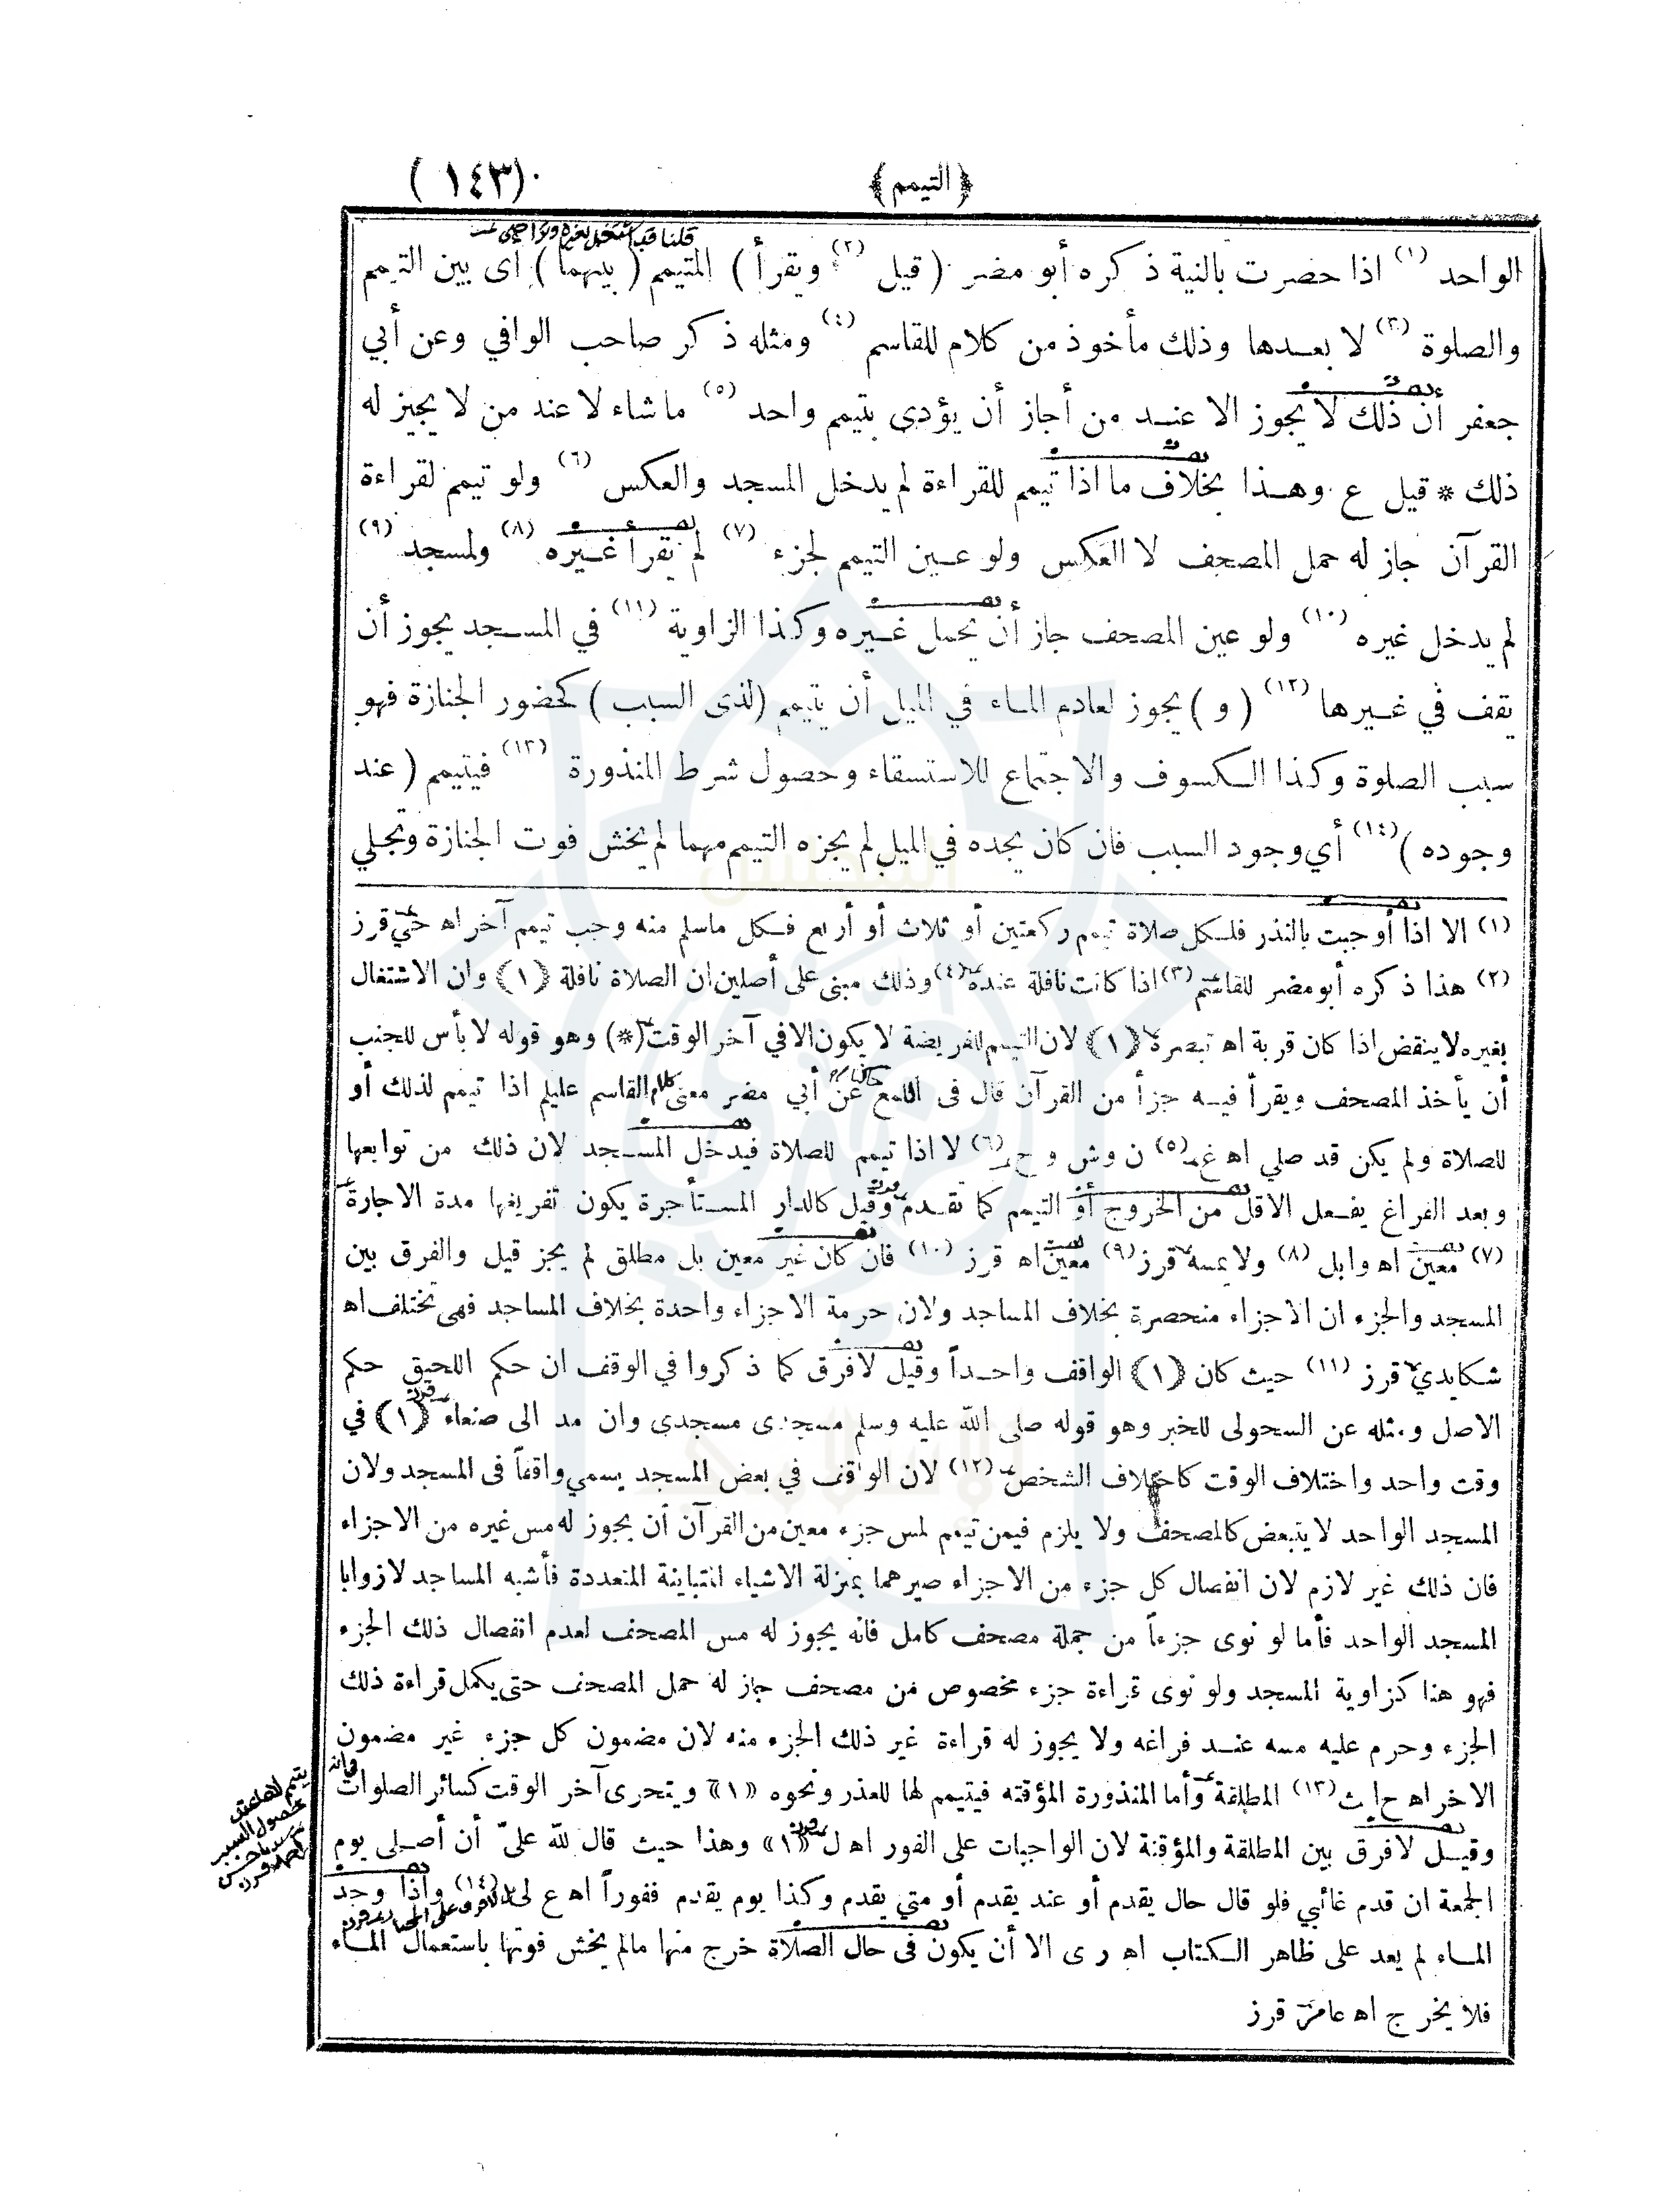 ﴿ التيمم ﴾ (١٤٣)
الواحد (١) اذا حضرت بالنية ذكره أبو مضر (قيل (٢) ويقرأ) المتيمم (بينهما) اى بين التيمم
والصلوة (٣) لا بعدها وذلك مأخوذ من كلام للقاسم (٤) ومثله ذكر صاحب الوافي وعن أبي
جعفر أن ذلك لا يجوز الا عند من أجاز أن يؤدى بتيمم واحد (٥) ماشاء لا عند من لا يجيز له
ذلك * قيل ع وهذا بخلاف ما اذا تيمم للقراءة لم يدخل المسجد والعكس (٦) ولو تيمم لقراءة
القرآن جاز له حمل المصحف لا العكس ولو عين التيمم لجزء (٧) لم يقرأ غيره (٨) ولمسجد (٩)
لم يدخل غيره (١٠) ولو عين المصحف جاز أن يحمل غيره وكذا الزاوية (١١) في المسجد يجوز أن
يقف في غيرها (١٢) (و) يجوز لعادم الماء في الميل أن يتيمم (لذى السبب) كحضور الجنازة فهو
سبب الصلوة وكذا الكسوف والاجتماع للاستسقاء وحصول شرط المنذورة (١٣) فيتيمم (عند
وجوده) (١٤) أي وجود السبب فان كان يجده في الميل لم يجزه التيمم مهما لم يخش فوت الجنازة وتجلي
(١) الا اذا أوجبت بالنذر فلكل صلاة تيمم ركعتين أو ثلاث أو أربع فكل ماسلم منه وجب تيمم آخر اه حثي قرز
(٢) هذا ذكره أبو مضر للقاسم (٣) اذا كانت نافلة عنده (٤) وذلك مبنى على أصلين ان الصلاة نافلة (١) وان الاشتغال
بغيره لا ينقض اذا كان قربة اه تبصرة (١) لان التيمم للفريضة لا يكون الا في آخر الوقت (*) وهو قوله لا بأس للجنب
أن يأخذ المصحف ويقرأ فيه جزأ من القرآن قال فى اللمع عن أبي مضر معنى كلام القاسم عليلم اذا تيمم لذلك أو
للصلاة ولم يكن قد صلي اه غم (٥) ن وش و ح (٦) لا اذا تيمم للصلاة فيدخل المسجد لان ذلك من توابعها
وبعد الفراغ يفعل الاقل من الخروج أو التيمم كما تقدم وقيل كالدار المستأجرة يكون تفريغها مدة الاجارة
(٧) معين اه وابل (٨) ولا يمسه قرز (٩) معين اه قرز (١٠) فان كان غير معين بل مطلق لم يجز قيل والفرق بين
المسجد والجزء ان الاجزاء منحصرة بخلاف المساجد ولان حرمة الاجزاء واحدة بخلاف المساجد فهى تختلف اه
شكايدي قرز (١١) حيث كان (١) الواقف واحداً وقيل لا فرق كما ذكروا في الوقف ان حكم اللحيق حكم
الاصل ومثله عن السحولى للخبر وهو قوله صلى الله عليه وسلم مسجدى مسجدى وان مد الى صنعاء (١) في
وقت واحد واختلاف الوقت كاختلاف الشخص (١٢) لان الواقف في بعض المسجد يسمي واقفاً فى المسجد ولان
المسجد الواحد لا يتبعض كالمصحف ولا يلزم فيمن تيمم لمس جزء معين من القرآن أن يجوز له مس غيره من الاجزاء
فان ذلك غير لازم لان انفصال كل جزء من الاجزاء صيرهما بمنزلة الاشياء المتباينة المتعددة فأشبه المساجد لا زوايا
المسجد الواحد فأما لو نوى جزءاً من جملة مصحف كامل فانه يجوز له مس المصحف لعدم انفصال ذلك الجزء
فهو هنا كزاوية المسجد ولو نوى قراءة جزء مخصوص من مصحف جاز له حمل المصحف حتى يكمل قراءة ذلك
الجزء وحرم عليه مسه عند فراغه ولا يجوز له قراءة غير ذلك الجزء منه لان مضمون كل جزء غير مضمون
الاخر اه ح ا ث (١٣) المطلقة وأما المنذورة المؤقته فيتيمم لها للعذر ونحوه «١» ويتحرى آخر الوقت كسائر الصلوات
وقيل لا فرق بين المطلقة والمؤقتة لان الواجبات على الفور اه ل «١» وهذا حيث قال لله عليّ أن أصلى يوم
الجمعة ان قدم غائبي فلو قال حال يقدم أو عند يقدم أو متي يقدم وكذا يوم يقدم ففوراً اه ع لي (١٤) واذا وجد
الماء لم يعد على ظاهر الكتاب اه ر ى الا أن يكون فى حال الصلاة خرج منها مالم يخش فوتها باستعمال الماء
فلا يخرج اه عامر قرز